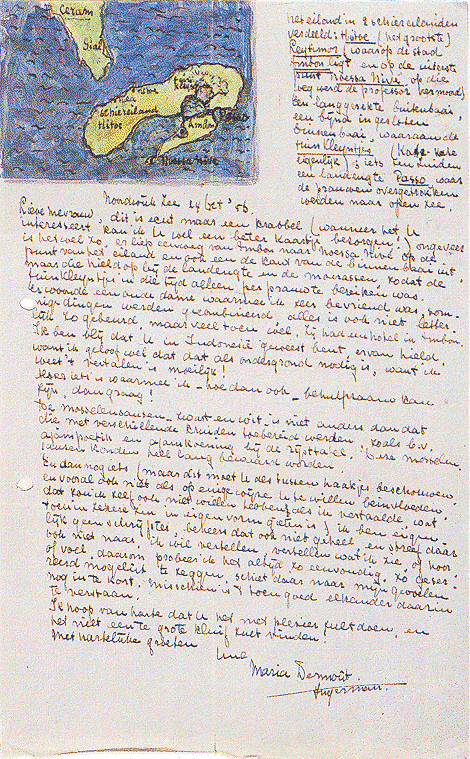 Ceram
Gial
hitoe
schiereiland
Hitoe
Ambon
Paso
Noessa Nivé
het eiland in 2 schiereilanden
verdeeld: Hitoe (het grootste)
Leytimor (waarop de stad
Ambon ligt en op de uiterste
punt Noessa Nivé, op die
weg werd de professor vermoord)
een langgerekte buitenbaai,
een bijna ingesloten
binnenbaai, waaraan de
tuin Kleyntjes (Kate-Kate
eigenlijk); iets ten zuiden
een landengte Passo waar
de prauwen overgetrokken
werden naar open zee.
Noordwijk Zee 14 Oct '56.
Lieve mevrouw, dit is echt maar een krabbel (wanneer het U
interesseert kan ik U wel een beter kaartje bezorgen!) ongeveer
is het wel zo, er liep een weg van Ambon naar Noessa Nivé op de
punt van het eiland en ook een de kant van de binnenbaai uit
maar die hield op bij de landengte en de moerassen, zodat de
tuin Kleyntjes in die tijd alleen per prauw te bereiken was.
Er woonde een oude dame waarmee ik zeer bevriend was, som-
mige dingen werden gecombineerd, alles is ook niet letter-
lijk zo gebeurd, maar veel toen wel. Zij had een hotel in Ambon.
Ik ben blij dat U in Indonesië geweest bent, ervan hield
want ik geloof wel dat dat als ondergrond nodig is, want ik
weet 't vertalen is moeilijk!
Als er iets is waarmee ik - hoe dan ook - behulpzaam kan
zijn, dan graag!
De mosselensausen - zwart en wit, is niet anders dan dat
die met verschillende kruiden toebereid werden, zoals b.v.
bij de rijsttafel. Deze mosselen,
sausen konden heel lang bewaard worden.
En dan nog iets (maar dit moet U als tussen haakjes beschouwen
en vooral ook niet als op enige wijze U te willen beïnvloeden
dat zou ik zelf ook niet willen hebben als ik vertaalde, want
toen in zekere zin in eigen vorm gieten is) ik ben eigen-
lijk geen schrijfster, beheers dat ook niet geheel en streef daar
ook niet naar. Ik wil vertellen, vertellen wat ik zie, of hoor
of voel, daarom probeer ik het altijd zo eenvoudig, zo gere-
seerd mogelijk te zeggen, schiet daar naar mijn gevoelen
nog in te kort. Misschien is 't toen goed elkander daarin
te verstaan.
Ik hoop van harte dat U het met plezier zult doen, en
het niet een te grote kluif zult vinden!
Met hartelijke groeten
Uwe
Maria Dermoût
Ingerman.